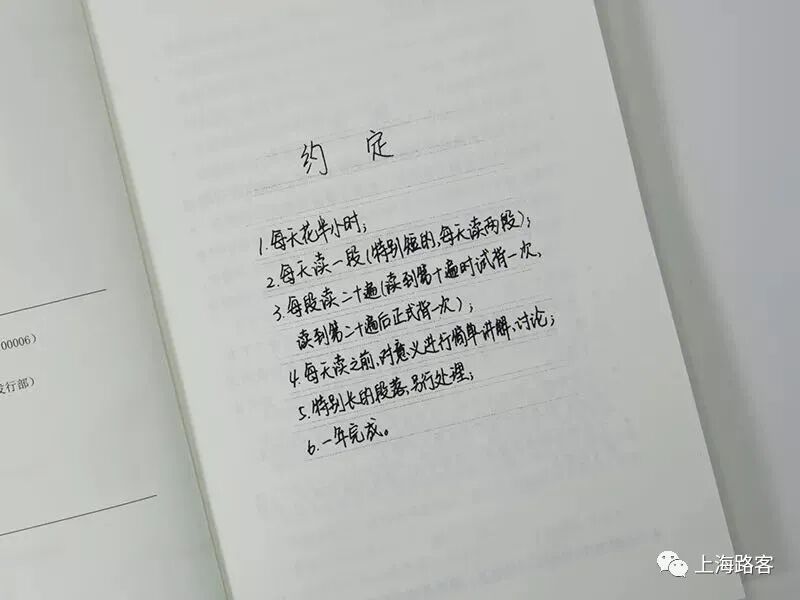 约 定
1.每天花半小时;
2.每天读一段(特别短的,每天读两段);
3.每段读二十遍(读到第十遍时试背一次,
读到第二十遍后正式背一次);
4.每天读之前,对意义进行简单讲解、讨论;
5.特别长的段落,另行处理;
6.一年完成。
00006)
发行部)
上海路客